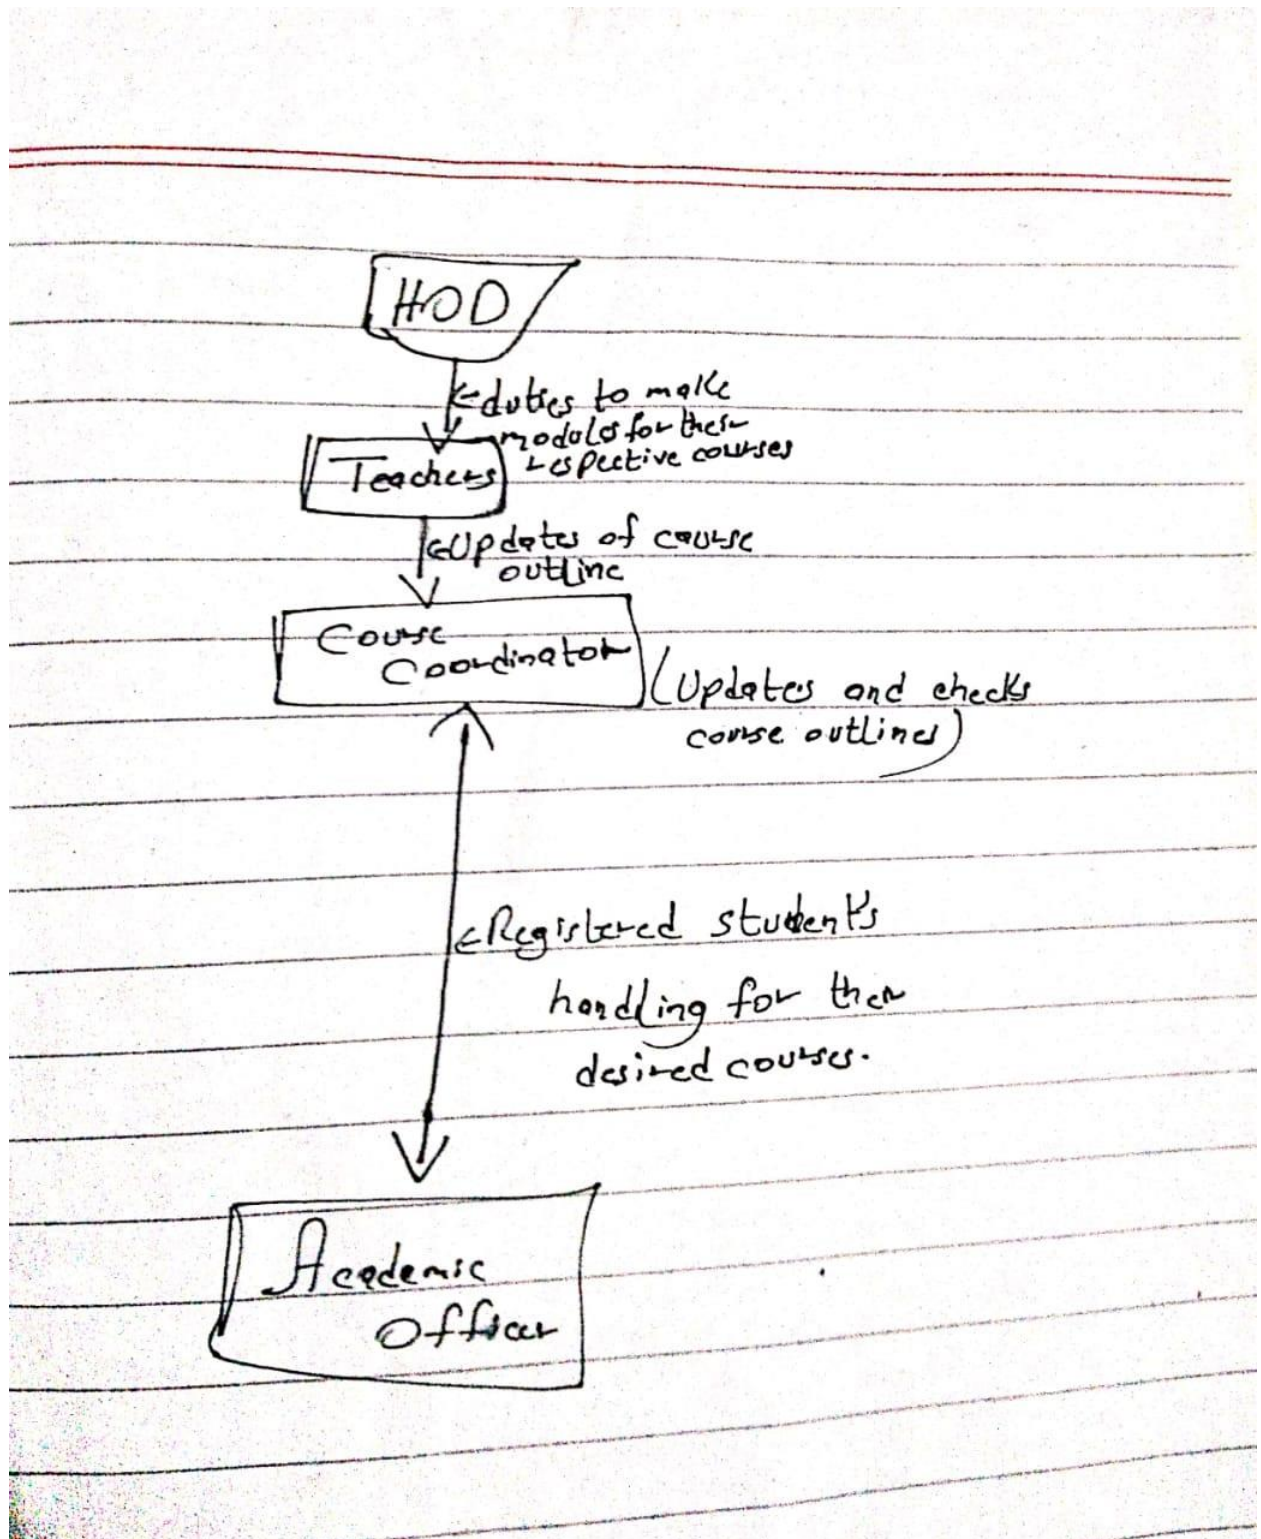 HOD
duties to make
modules for their
respective courses
Teachers
Updates of course
outline
Course
Coordinator
(Updates and checks
course outlines)
Registered student's
handling for their
desired courses.
Academic
Officer